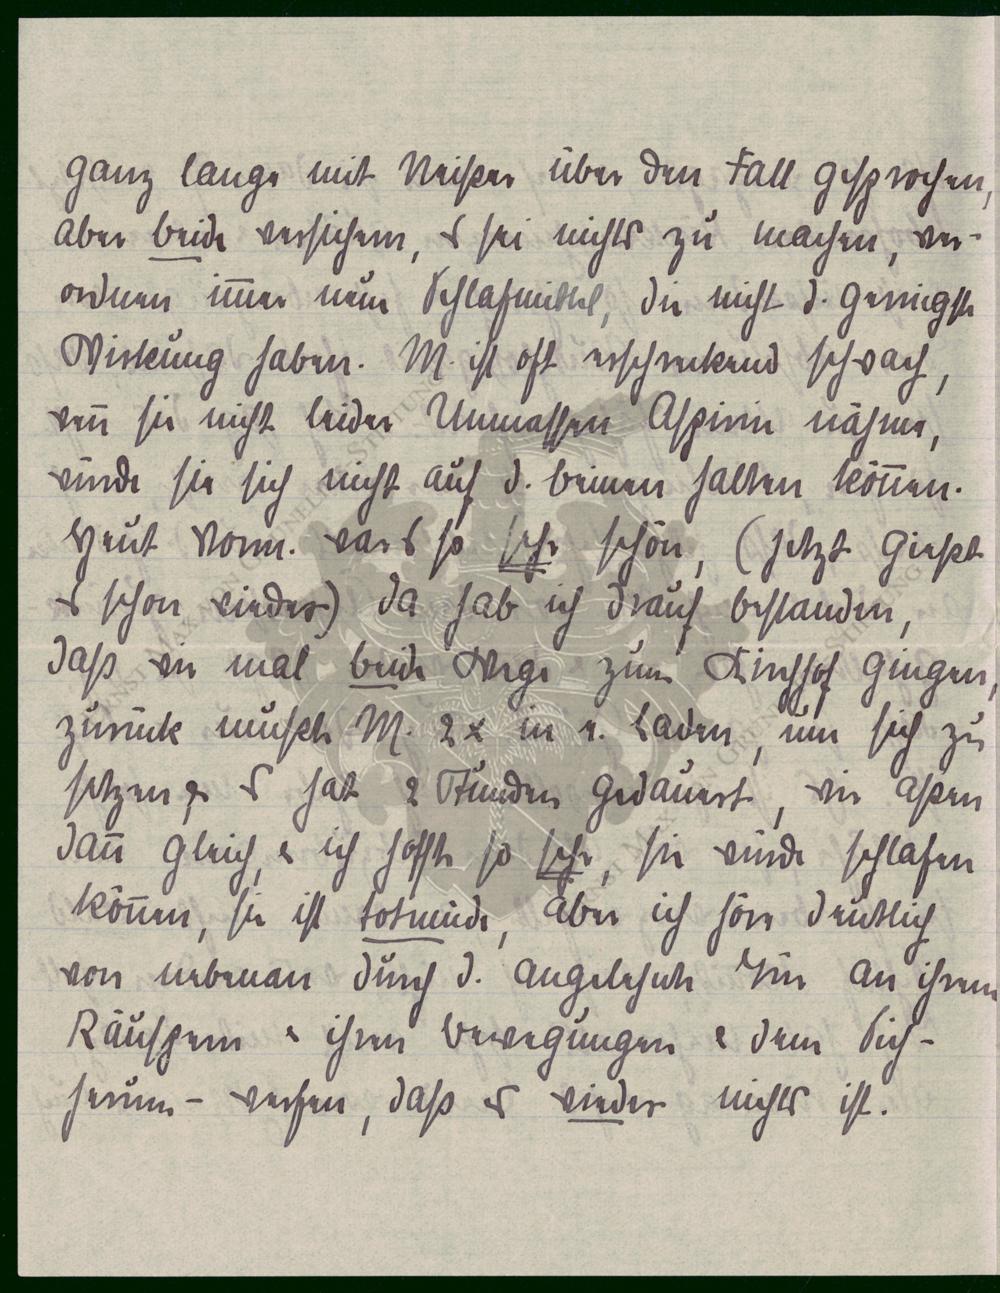 ganz lange mit Meißner über den Fall gesprochen,
aber beide versichern, es sei nichts zu machen, ver-
ordnen im̄er neue Schlafmittel, die nicht d. geringste
Wirkung haben. M. ist oft erschreckend schwach,
wen̄ sie nicht leider Unmassen Aspirin nähme,
würde sie sich nicht auf d. beinen halten kön̄en.
Heut Vorm. war es so sehr schön, (jetzt gießt
es schon wieder) da hab ich drauf bestanden,
daß wir mal beide Wege zum Kirchhof gingen,
zurück mußte M. 2x in e. Laden, um sich zu
setzen & es hat 2 Stunden gedauert, wir aßen
dan̄ gleich, & ich hoffte so sehr, sie würde schlafen
kön̄en, sie ist totmüde, aber ich höre deutlich
von nebenan durch d. angelehnte Tür an ihrem
Räuspern & ihren bewegungen & dem Sich-
herum-werfen, daß es wieder nichts ist.
ERNST MAX VON GRUNELIUS-STIFTUNG